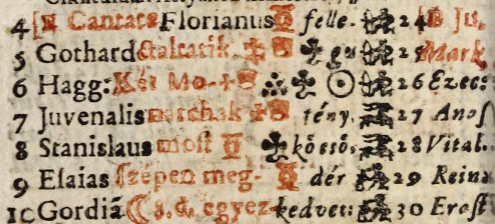 4 [N Cantate Florianus felle. 24 B Ju
5 Gothard gu 25 Mark
6 Hagg: Két Mo- 26 Ezec:
7 Juvenalis marchak fény. 27 Anaſ
8 Stanislaus moſt köeső. 28 Vital.
9 Eſaias ſzépen meg- dér 29 Reina
10 Gordiã a.d. egyez- kedvet: 30 Eraſt